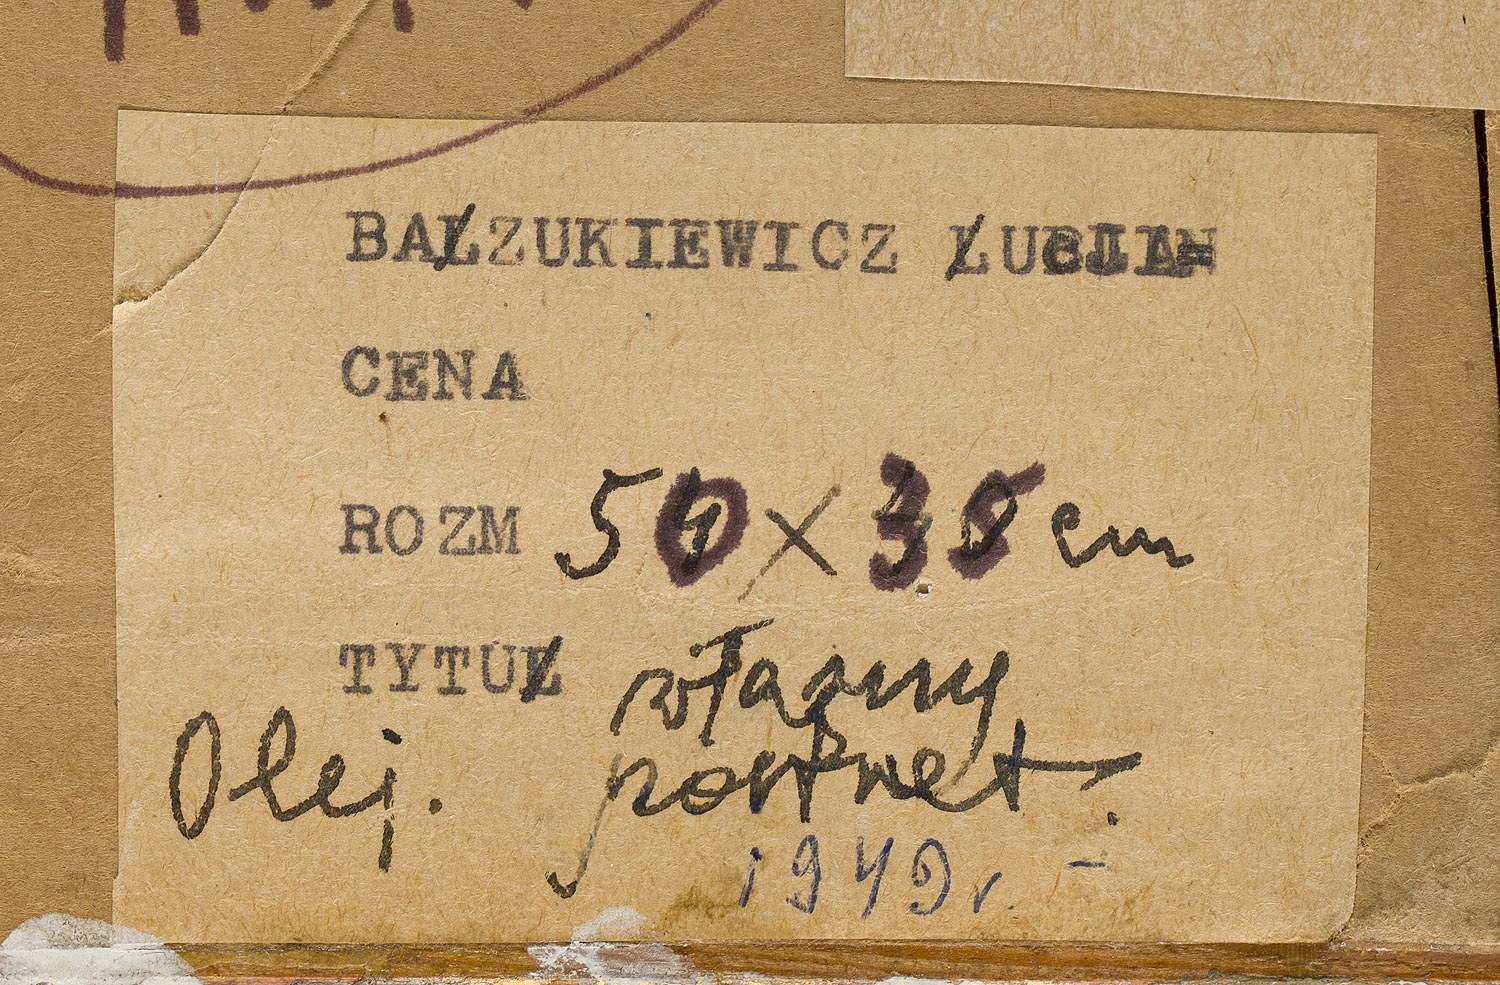 BAŁZUKIEWICZ ŁUCJAN
CENA
ROZM 50 X 35 cm
TYTUŁ własny
Olej. portret.
1949 r. –